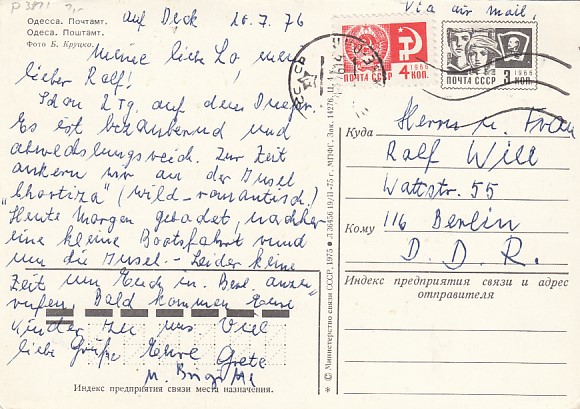 Одесса. Почтамт.
Одеса. Поштамт.
Фото Б. Круцко.
auf Deck 20.7.76
Meine liebe Lo, mein
lieber Ralf!
Schon 2 Tg. auf dem Dnepr.
Es ist bezaubernd und
abwechslungsreich. Zur Zeit
ankern wir an der Insel
"Chortiza" (wild-romantisch.)
Heute Morgen gebadet, nachher
eine kleine Bootsfahrt rund
um die Insel. - Leider keine
Zeit um Euch in Berl. anzu-
rufen. Bald kommen Eure
Kinder zu uns. Viel
liebe Grüße Eure Grete
u. Brigitte
Индекс предприятия связи места назначения.
© Министерство связи СССР, 1975 • Л 36456 19/II-75 г. МПФГ. Зак. 14276. Ц.
Via air mail.
1966
ПОЧТА СССР 4 КОП.
1966
ПОЧТА СССР 3 КОП.
СССР
Куда
Herrn u. Frau
Ralf Will
Wattstr. 55
Кому
116 Berlin
D. D. R.
Индекс предприятия связи и адрес
отправителя